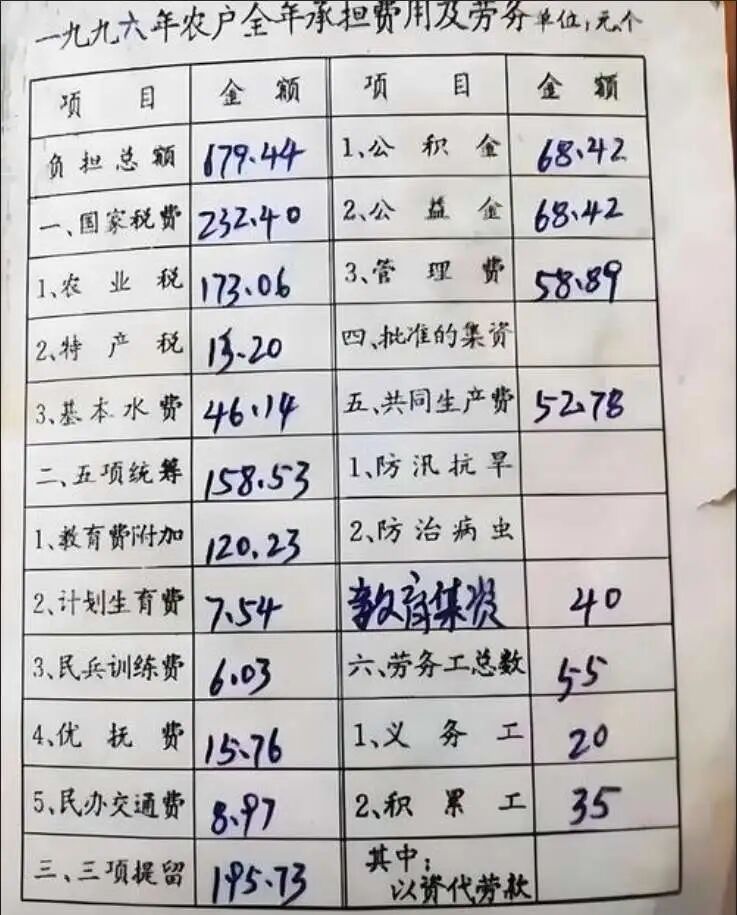 一九九六年农户全年承担费用及劳务 单位:元、个
项目 金额 项目 金额
负担总额 679.44 1.公积金 68.42
一、国家税费 232.40 2.公益金 68.42
1.农业税 173.06 3.管理费 58.89
2.特产税 13.20 四、批准的集资
3.基本水费 46.14 五、共同生产费 52.78
二、五项统筹 158.53 1.防汛抗旱
1.教育费附加 120.23 2.防治病虫
2.计划生育费 7.54 教育集资 40
3.民兵训练费 6.03 六、劳务工总数 55
4.优抚费 15.76 1.义务工 20
5.民办交通费 8.97 2.积累工 35
三、三项提留 195.73 其中:
以资代劳款